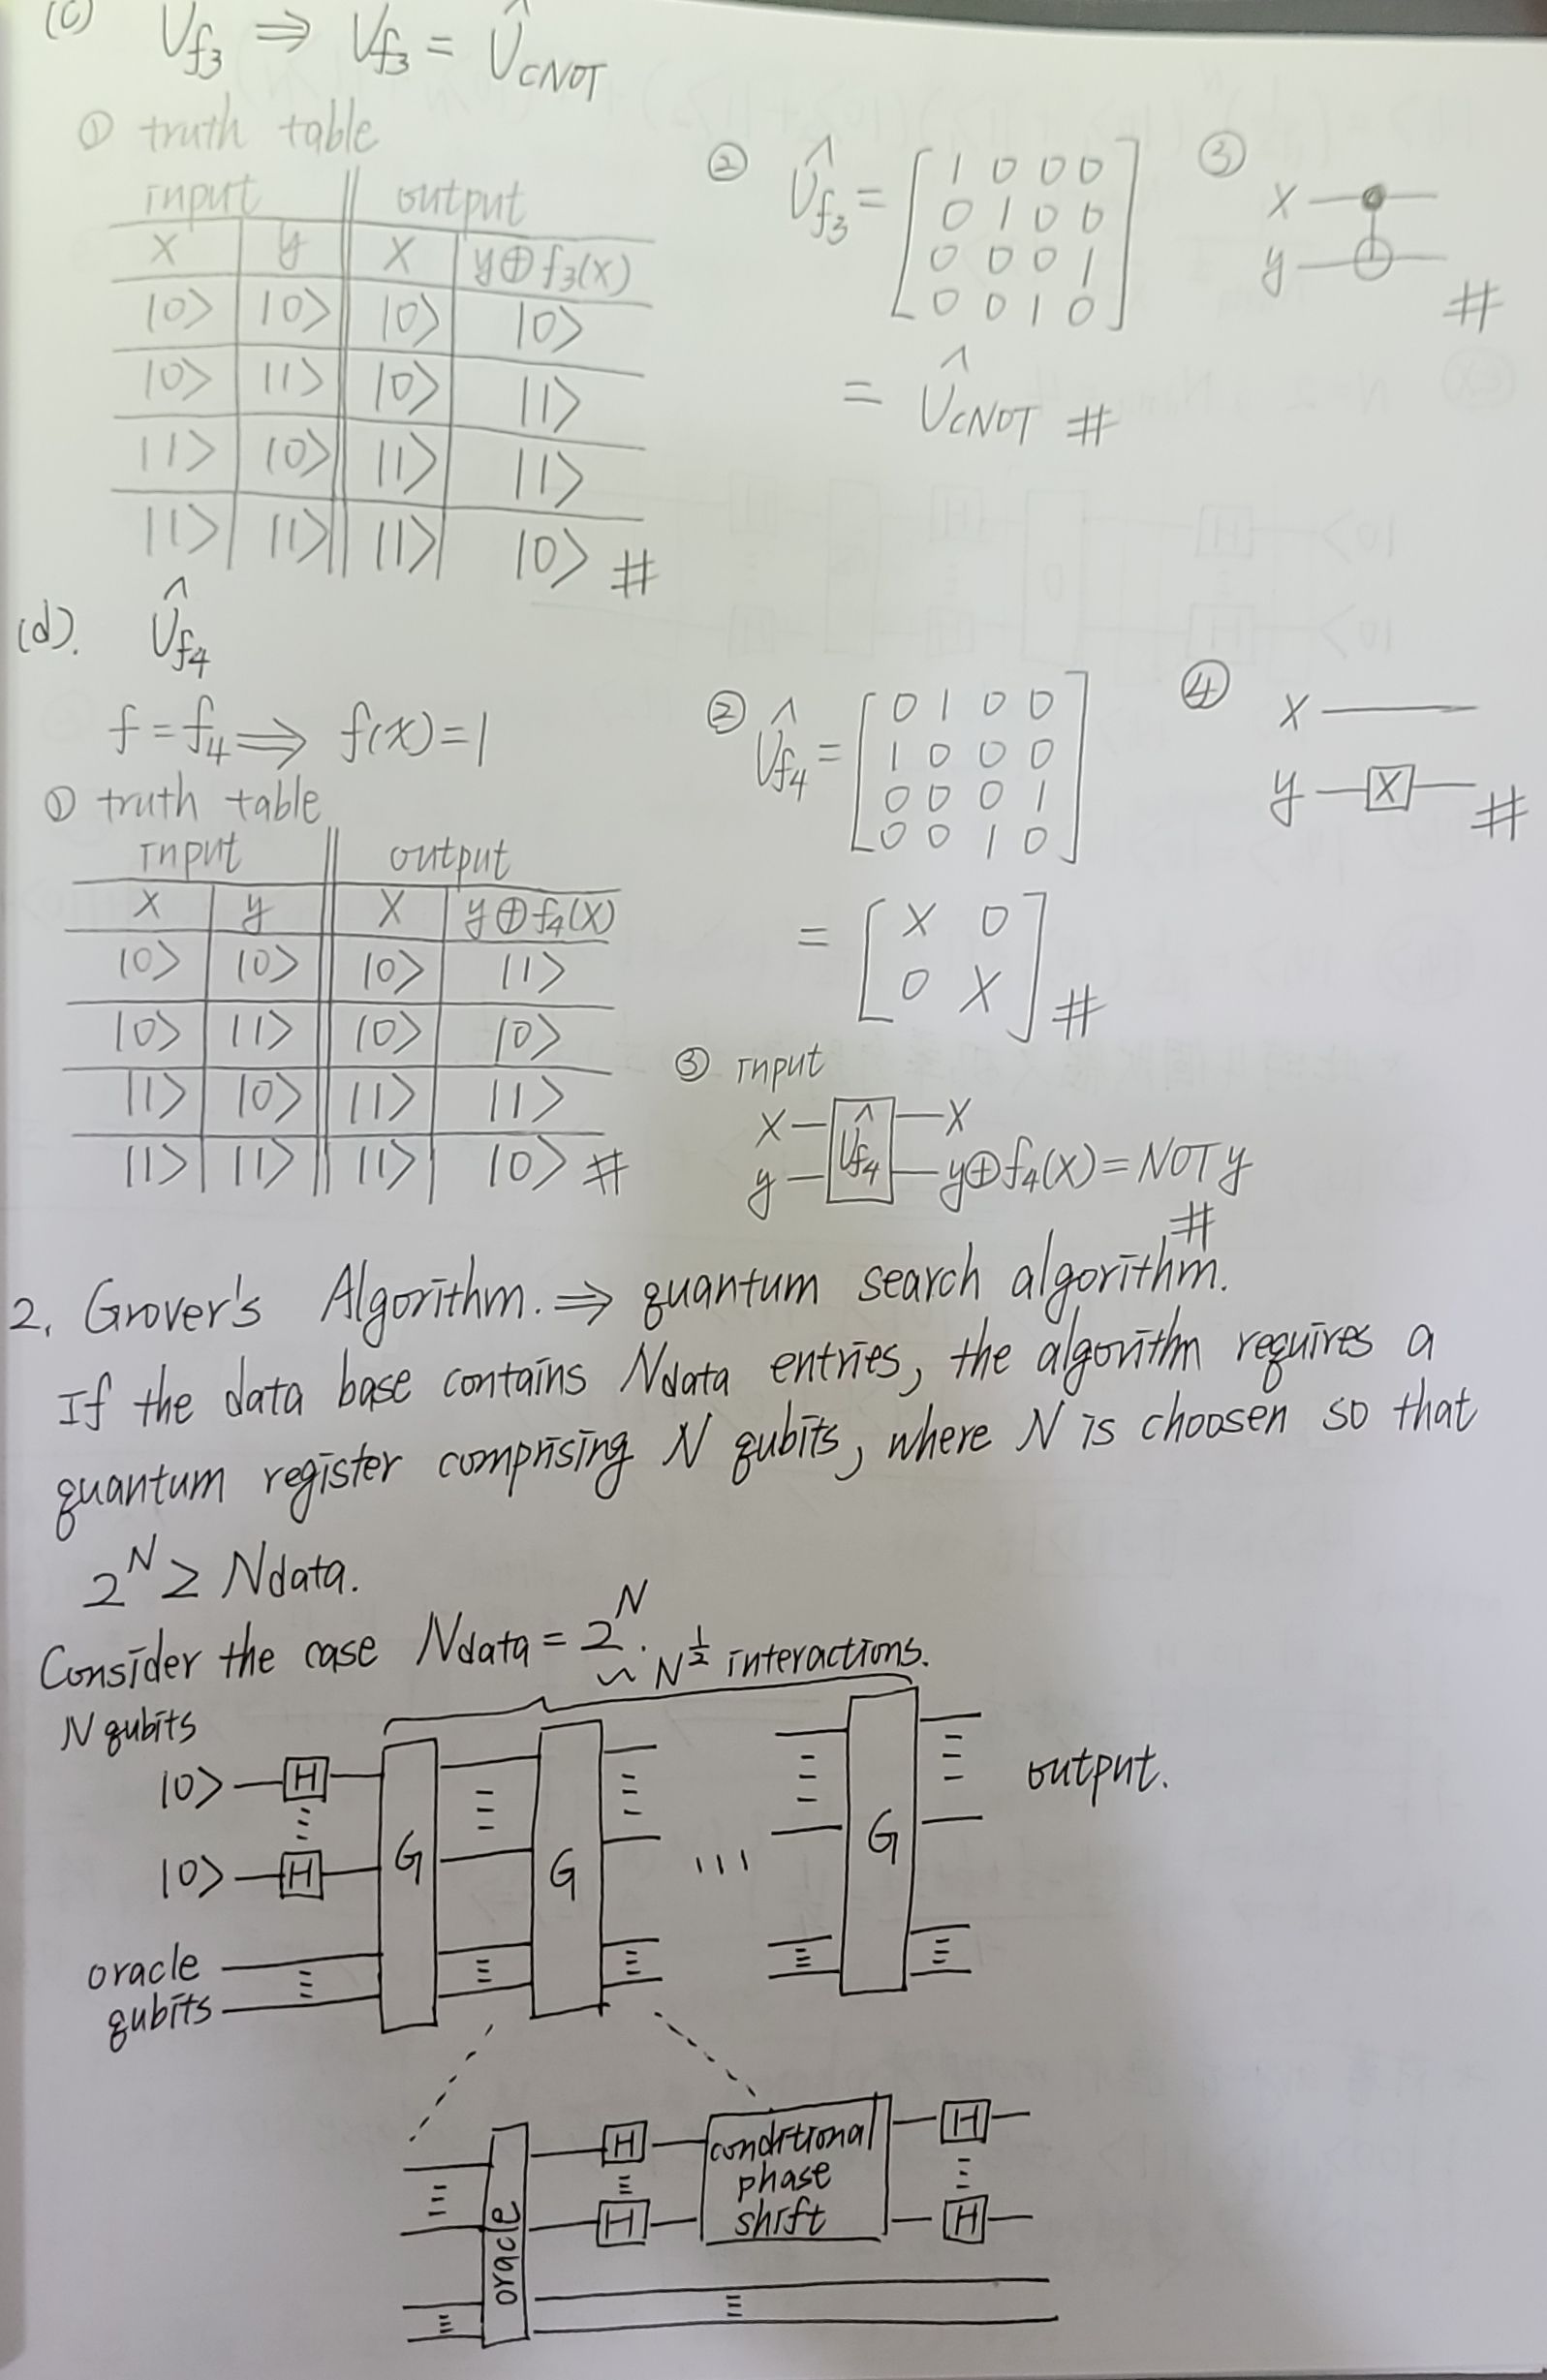 (c) U_f3 ⇒ U_f3 = Û_CNOT
① truth table
input || output
x | y || x | y⊕f₃(x)
|0> | |0> || |0> | |0>
|0> | |1> || |0> | |1>
|1> | |0> || |1> | |1>
|1> | |1> || |1> | |0> #
② Û_f3 = [ 1 0 0 0
0 1 0 0
0 0 0 1
0 0 1 0 ]
= Û_CNOT #
③ x
y #
(d). Û_f4
f = f₄ ⇒ f(x) = 1
① truth table
input || output
x | y || x | y⊕f₄(x)
|0> | |0> || |0> | |1>
|0> | |1> || |0> | |0>
|1> | |0> || |1> | |1>
|1> | |1> || |1> | |0> #
② Û_f4 = [ 0 1 0 0
1 0 0 0
0 0 0 1
0 0 1 0 ]
= [ X 0
0 X ] #
③ input
x Û_f4 x
y y⊕f₄(x) = NOT y
#
④ x
y X #
2. Grover's Algorithm. ⇒ quantum search algorithm.
If the data base contains Ndata entries, the algorithm requires a
quantum register comprising N qubits, where N is choosen so that
2^N ≥ Ndata.
Consider the case Ndata = 2^N.
~ N^½ interactions.
N qubits
|0> H
⋮
|0> H
G G ... G output.
oracle
qubits
oracle H H conditional
phase
shift H H